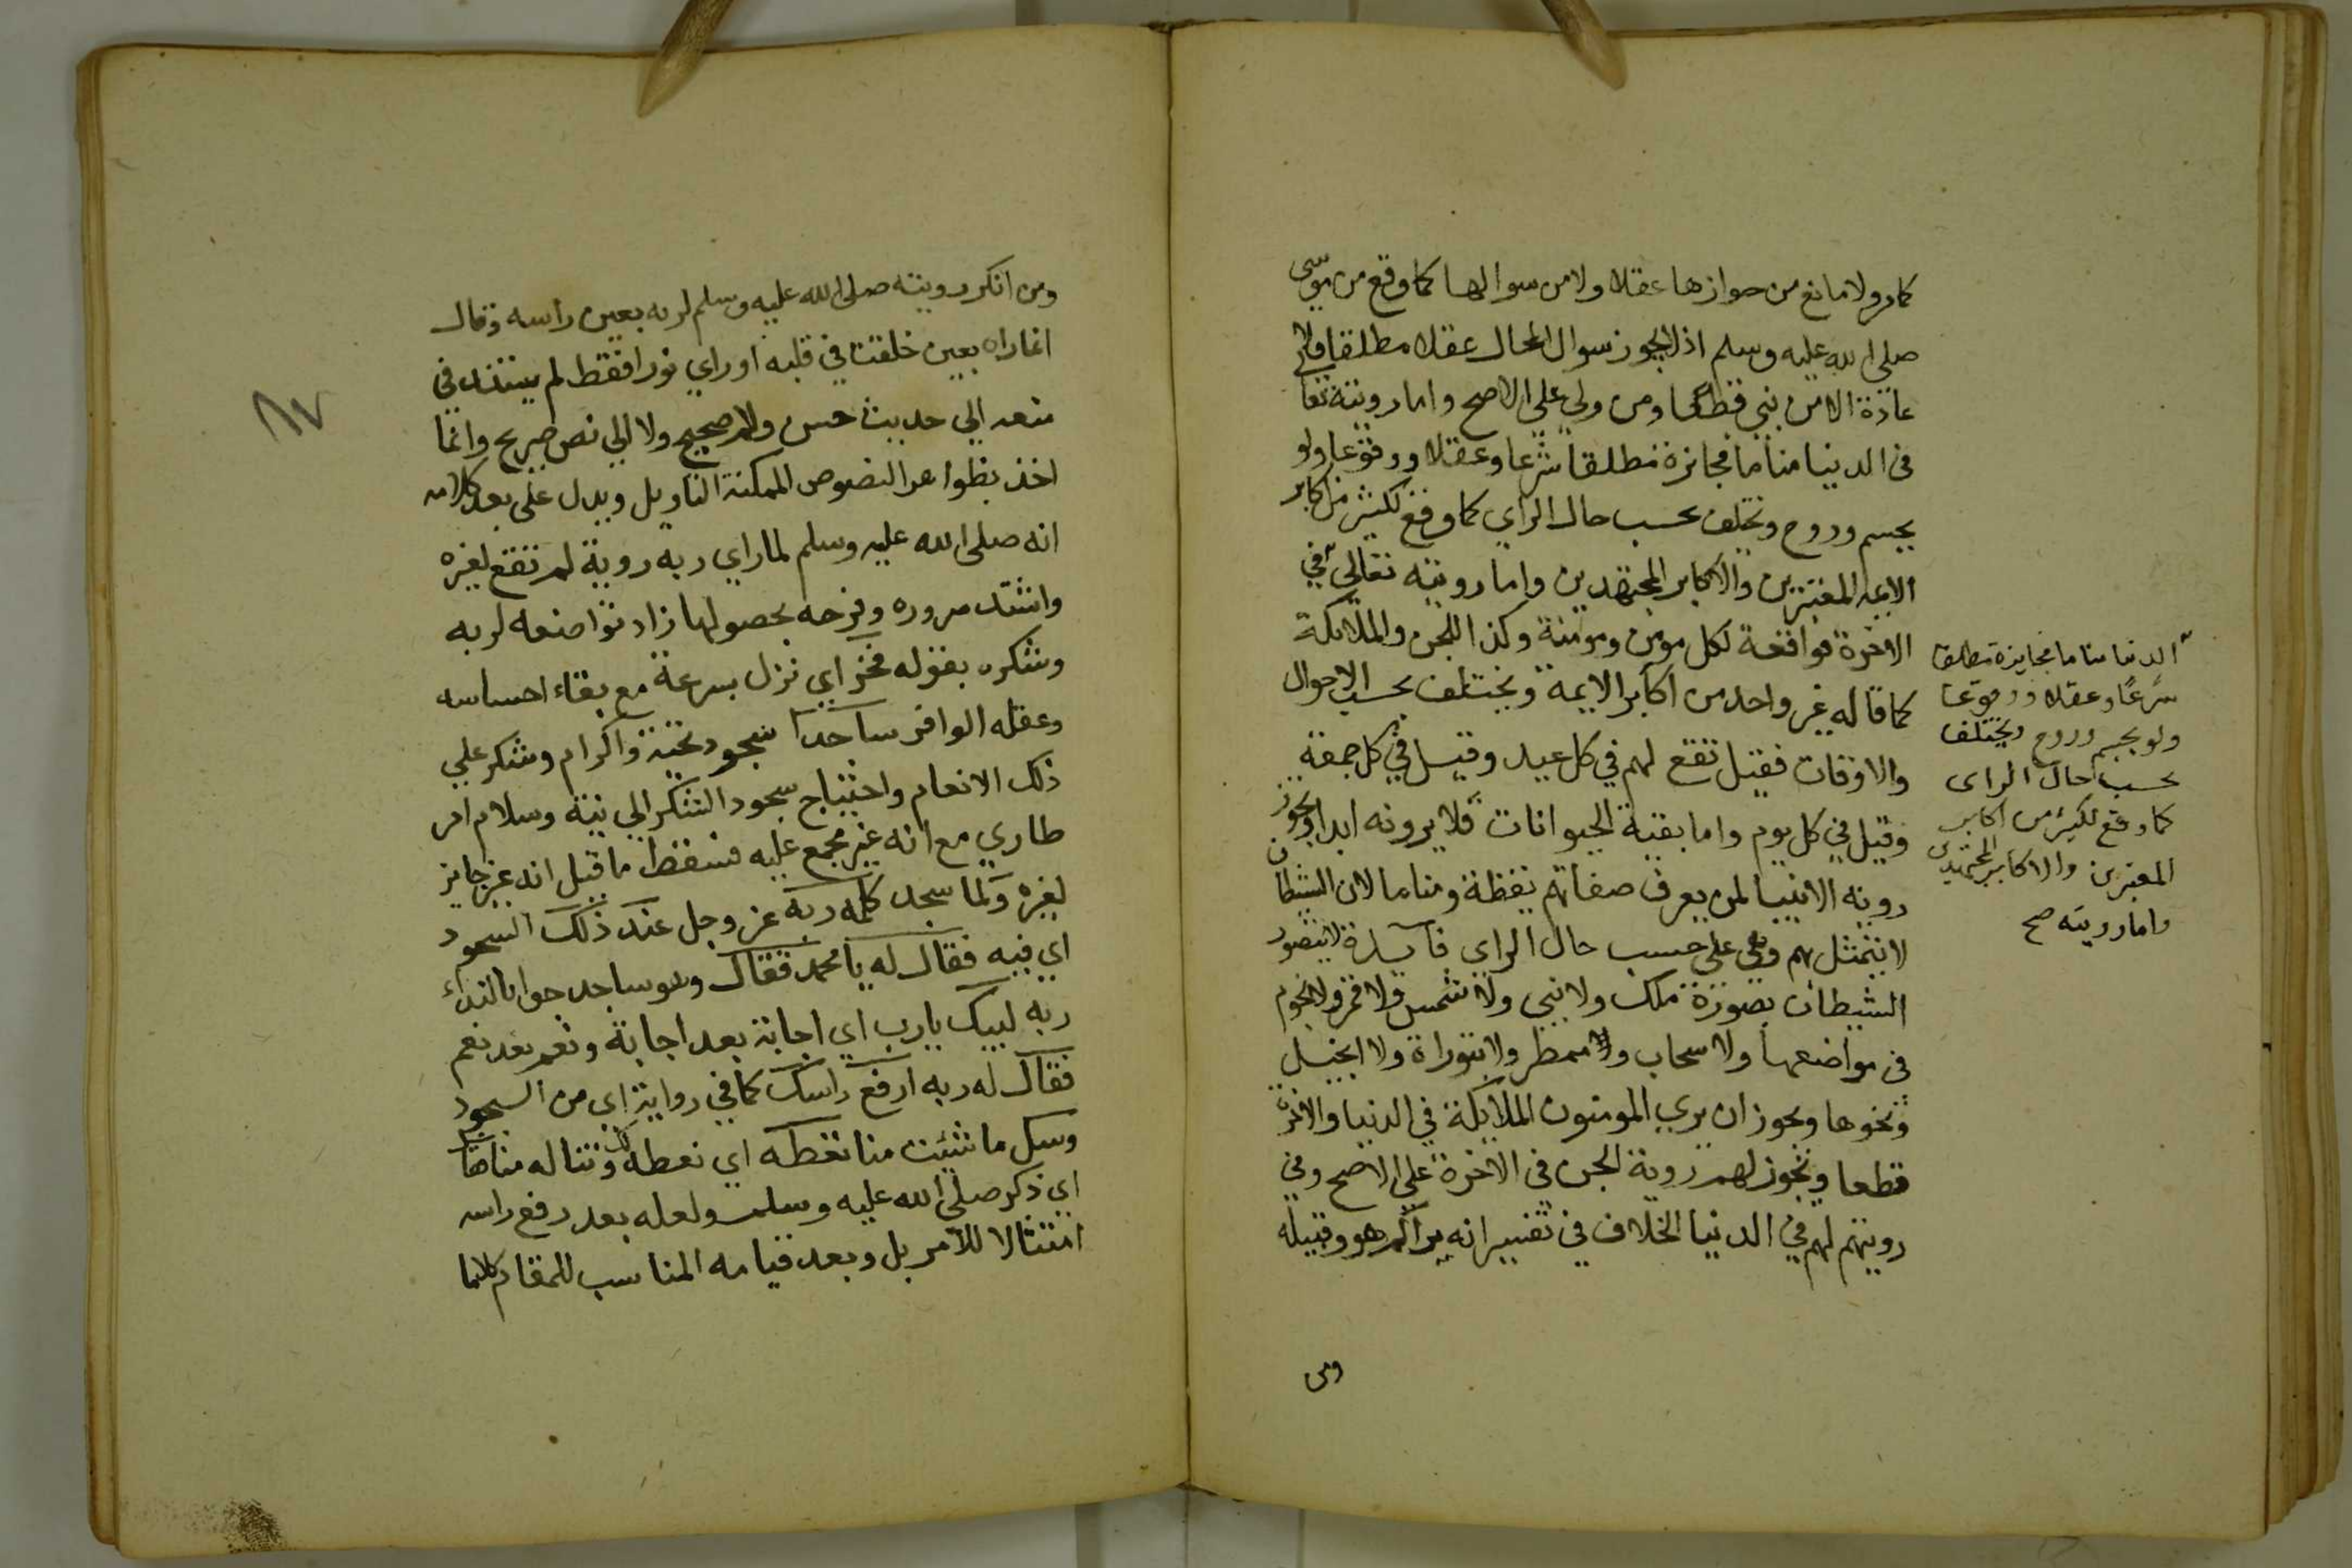 كامر ولا مانع من جوازها عقلا ولا من سوالها كما وقع من موسى
صلى الله عليه وسلم اذ لا يجوز سوال المحال عقلا مطلقا ولا
عادة الا من نبي قطعا ومن ولي علي الاصح واما رويته تعا
في الدنيا مناما فجائزة مطلقا شرعا وعقلا ووقوعا ولو
بجسم وروح وتختلف بحسب حال الراي كما وقع لكثير من اكابر
الايمة المعتبرين والاكابر المجتهدين واما رويته تعالي في
الاخرة فواقعة لكل مومن ومومنة وكذا للجن والملايكة
كما قاله غير واحد من اكابر الايمة ويختلف بحسب الاحوال
والاوقات فقيل تقع لهم في كل عيد وقيل في كل جمعة
وقيل في كل يوم واما بقية الحيوانات فلا يرونه ابدا ويجوز
روية الانبيا لمن يعرف صفاتهم يقظة ومناما لان الشيطان
لا يتمثل بهم وهي علي حسب حال الراي فآيدة لا يتصور
الشيطان بصورة ملك ولا نبي ولا شمس ولا قمر ولا نجوم
في مواضعها ولا سحاب ولا ممطر ولا بتوراة ولا انجيل
ونحوها ويجوز ان يري المومنون الملايكة في الدنيا والاخرة
قطعا ويجوز لهم روية الجن في الاخرة علي الاصح وفي
رويتهم لهم في الدنيا الخلاف في تفسير انه يراكم هو وقبيله
ومن
الدنيا مناما فجايزة مطلقا
شرعا وعقلا ووقوعا
ولو بجسم وروح ويختلف
بحسب حال الراى
كما وقع لكثير من اكابر
المعتبرين والاكابر المجتهدين
واما رويته صح
ومن انكر رويته صلى الله عليه وسلم لربه بعين راسه وقال
انما راه بعين خلقت في قلبه او راي نورا فقط لم يستند في
منعه الي حديث حسن ولا صحيح ولا الي نص صريح وانما
اخذ بظواهر النصوص الممكنة التاويل ويدل على بعد كلامه
انه صلى الله عليه وسلم لما راي ربه روية لم تقع لغيره
واشتد سروره وفرحه بحصولها زاد تواضعه لربه
وشكره بقوله فخر اي نزل بسرعة مع بقاء احساسه
وعقله الوافر ساجدا سجود تحية واكرام وشكر علي
ذلك الانعام واحتياج سجود الشكر الي نية وسلام امر
طاري مع انه غير مجمع عليه فسقط ما قيل انه غير جايز
لغيره ولما سجد كلمه ربه عز وجل عند ذلك السجود
اي فيه فقال له يا محمد فقال وهو ساجد جوابا لنداء
ربه لبيك يا رب اي اجابة بعد اجابة ونعم بعد نعم
فقال له ربه ارفع راسك كما في رواية اي من السجود
وسل ما شئت منا نعطه اي نعطه لك وتناله منا
اي ذكر صلى الله عليه وسلم ولعله بعد رفع راسه
امتثالا للامر بل وبعد قيامه المناسب للمقام كلاما